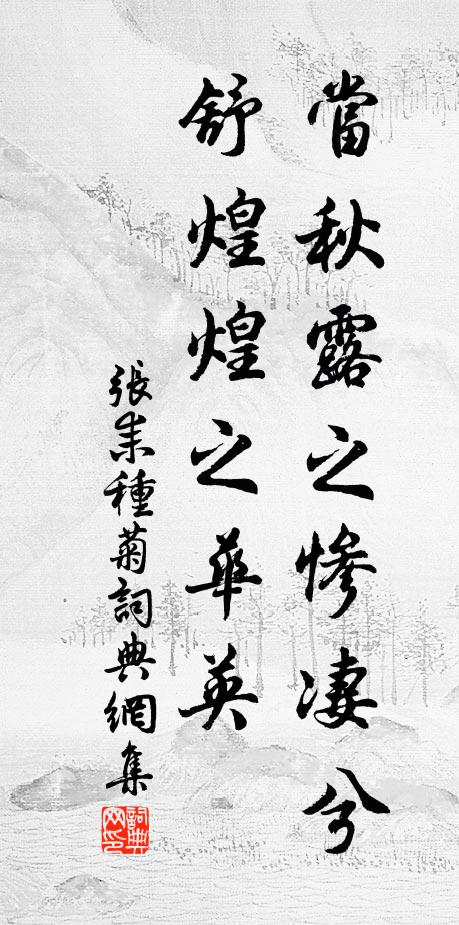 當秋露之慘凄兮
舒煌煌之華英
張耒種菊詞典網集
詞典
网印